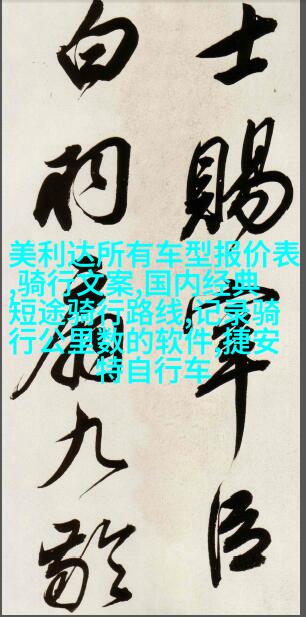 士賜宰臣
白羽扇九齡
美利达所有车型报价表
,骑行文案,国内经典
短途骑行路线,记录骑
行公里数的软件,捷安
特自行车